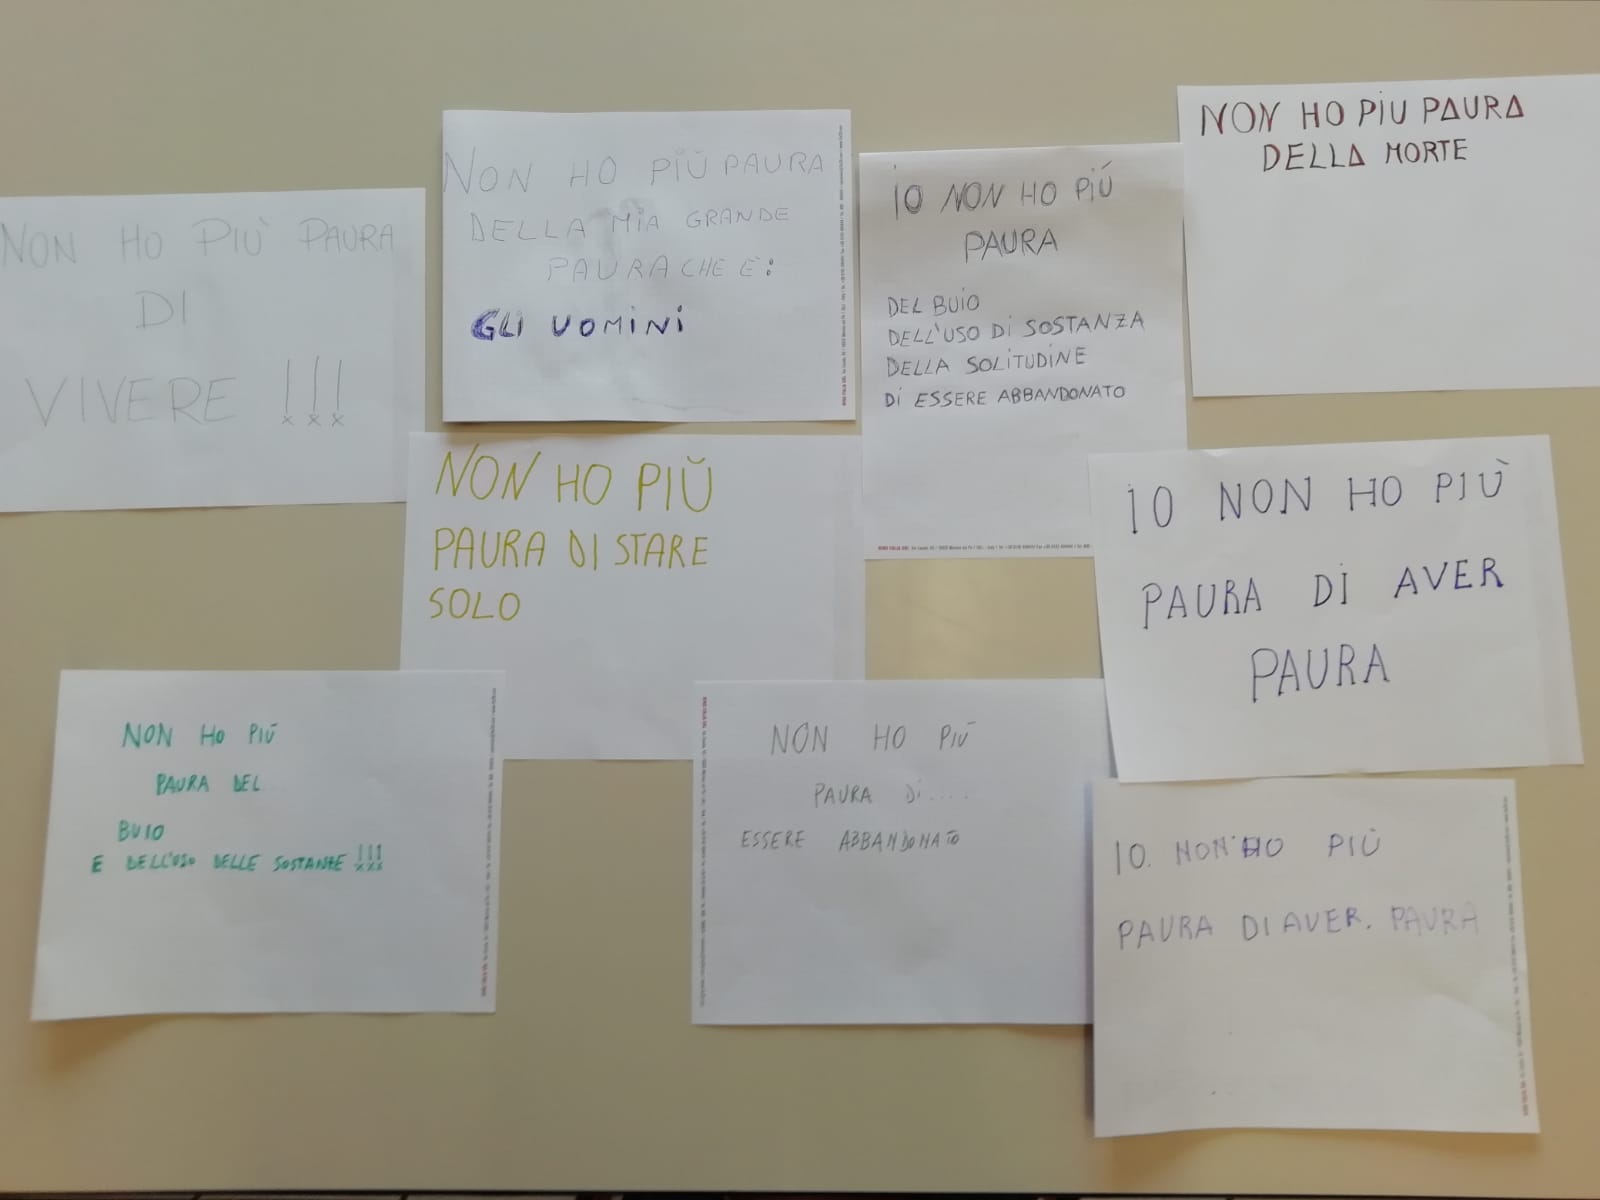 NON HO PIÙ PAURA
DI
VIVERE !!!
NON HO PIÙ PAURA
DELLA MIA GRANDE
PAURA CHE E:
GLI UOMINI
IO NON HO PIÚ
PAURA
DEL BUIO
DELL'USO DI SOSTANZA
DELLA SOLITUDINE
DI ESSERE ABBANDONATO
NON HO PIU PAURA
DELLA MORTE
NON HO PIÙ
PAURA DI STARE
SOLO
IO NON HO PIÙ
PAURA DI AVER
PAURA
NON HO PIÙ
PAURA DEL
BUIO
E DELL'USO DELLE SOSTANZE !!!
NON HO PIÙ
PAURA DI....
ESSERE ABBANDONATO
IO. NON HO PIÙ
PAURA DI AVER. PAURA